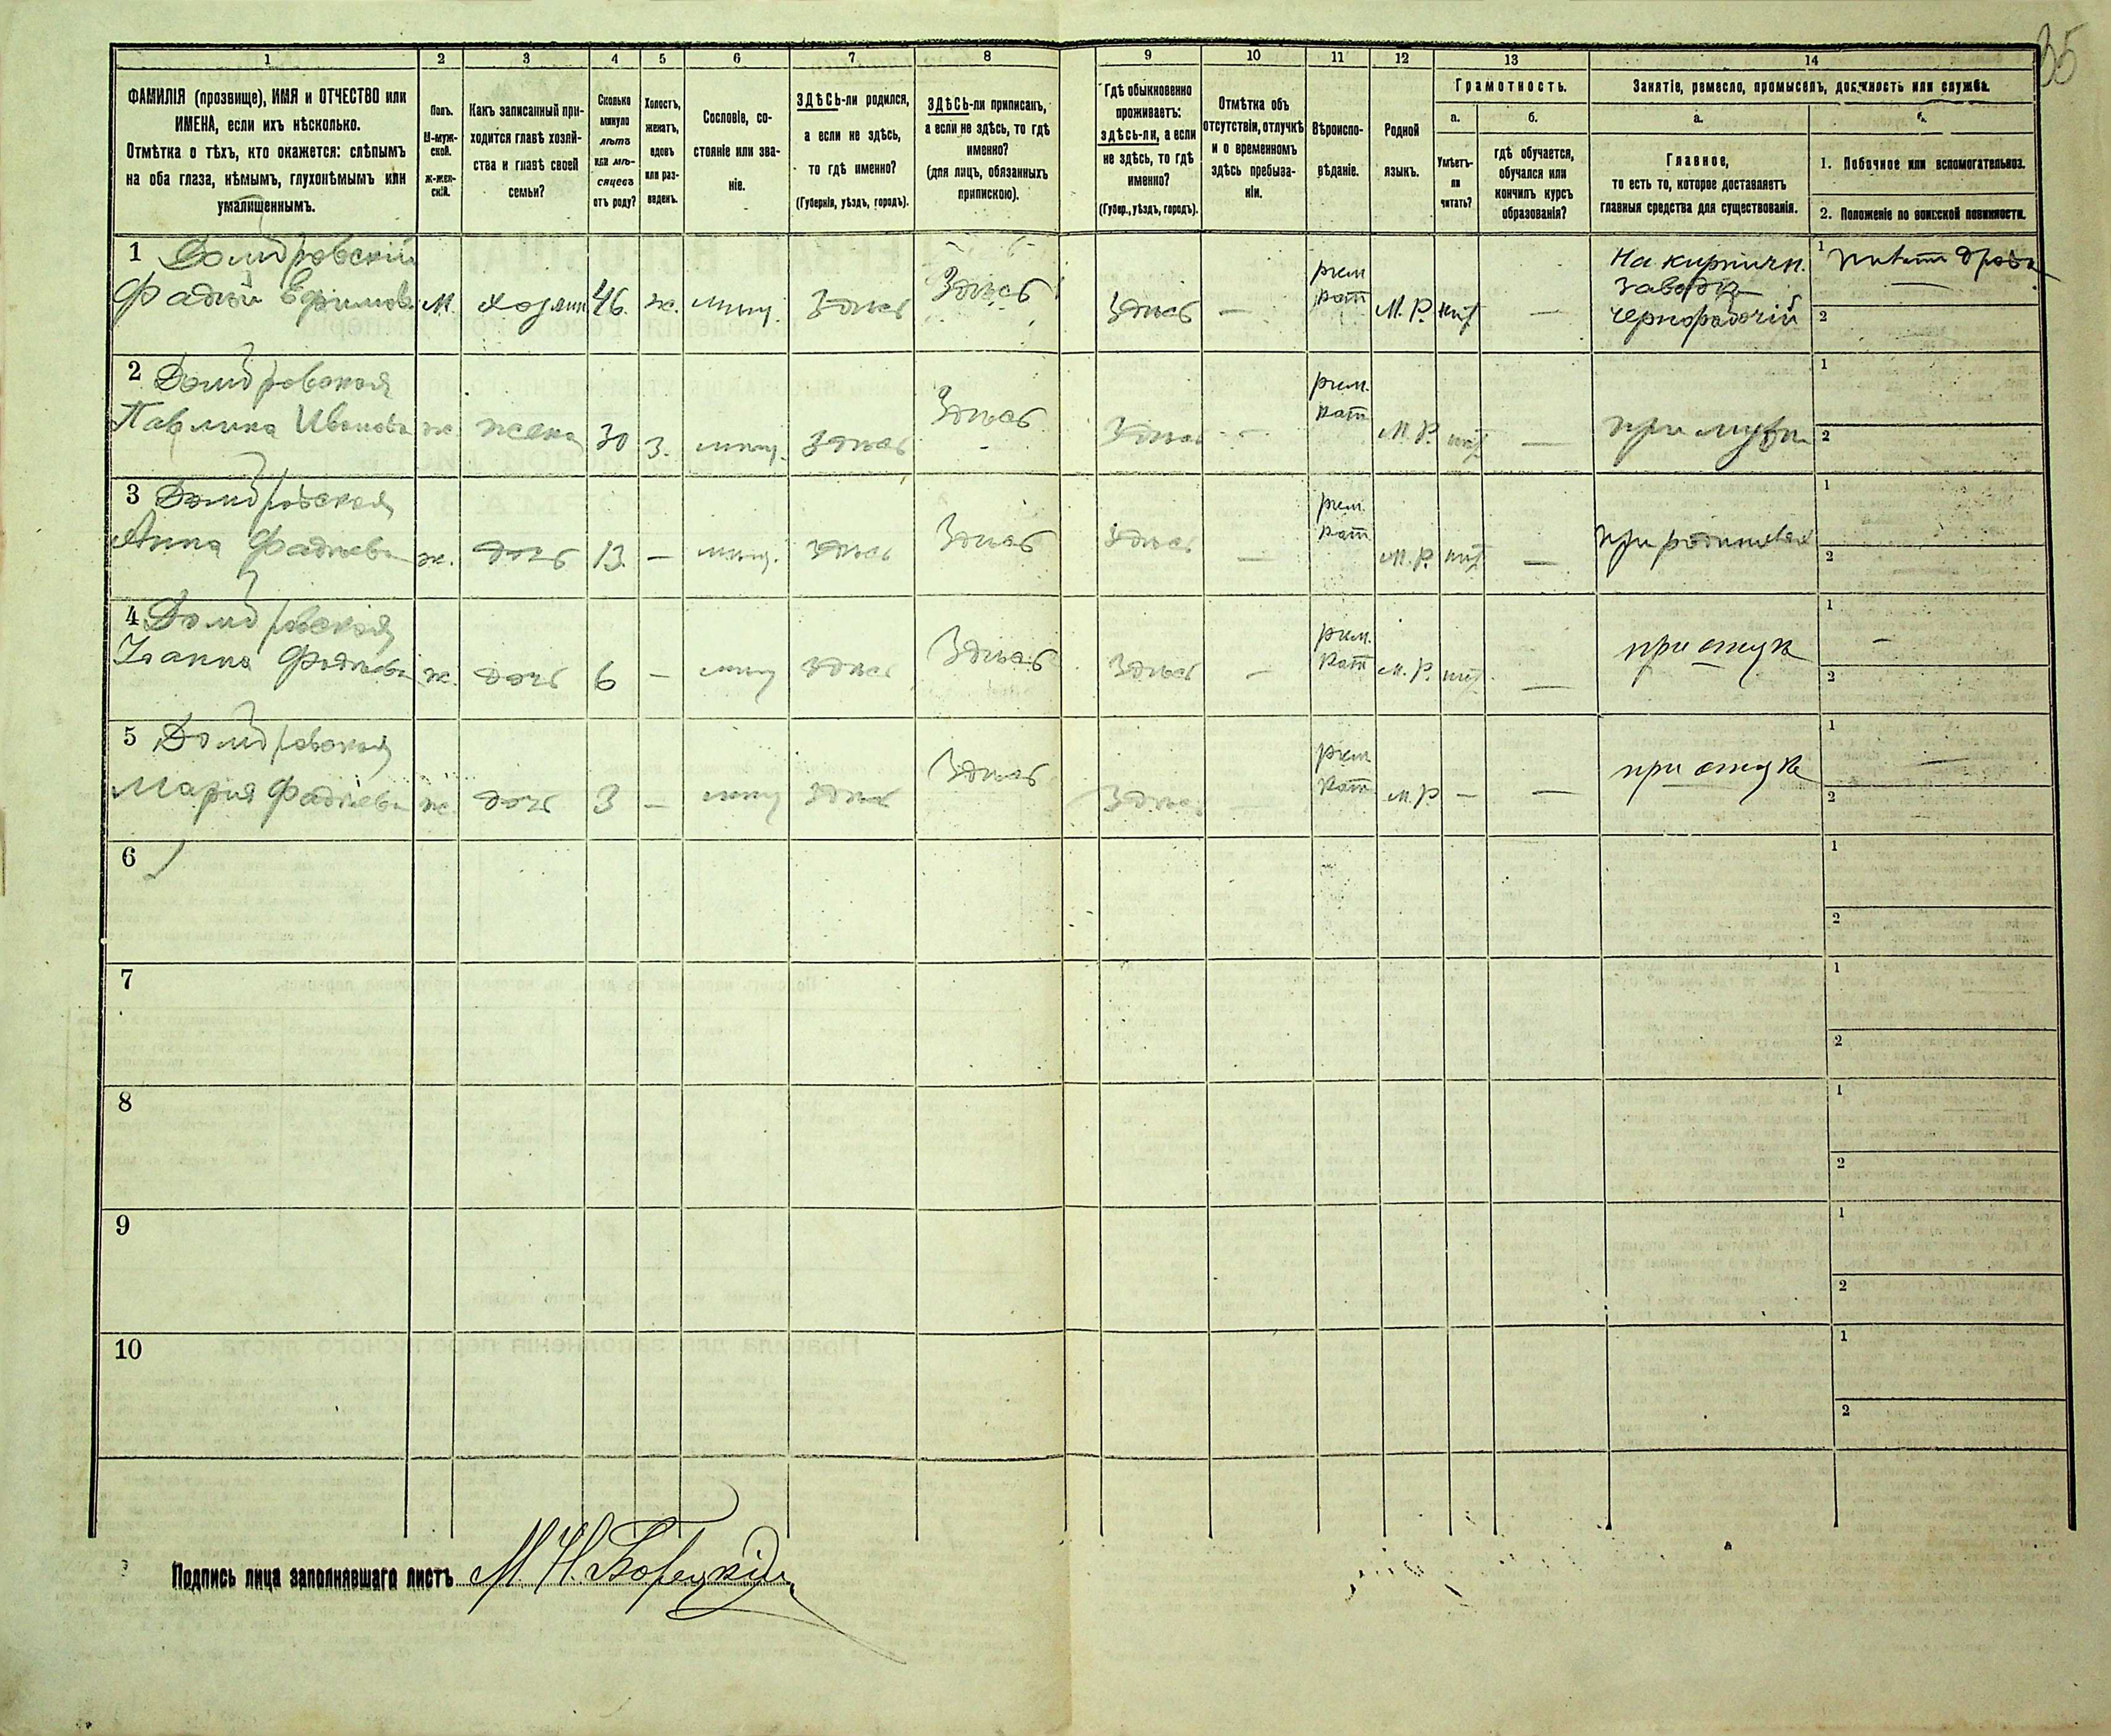 35
1 2 3 4 5 6 7 8 9 10 11 12 13 14
ФАМИЛІЯ (прозвище), ИМЯ и ОТЧЕСТВО или
ИМЕНА, если ихъ нѣсколько.
Отмѣтка о тѣхъ, кто окажется: слѣпымъ
на оба глаза, нѣмымъ, глухонѣмымъ или
умалишеннымъ.
Полъ.
М-муж-
ской.
ж-жен-
скій.
Какъ записанный при-
ходится главѣ хозяй-
ства и главѣ своей
семьи?
Сколько
минуло
лѣтъ
или мѣ-
сяцевъ
отъ роду?
Холостъ,
женатъ,
вдовъ
или раз-
веденъ.
Сословіе, со-
стояніе или зва-
ніе.
ЗДѢСЬ-ли родился,
а если не здѣсь,
то гдѣ именно?
(Губернія, уѣздъ, городъ).
ЗДѢСЬ-ли приписанъ,
а если не здѣсь, то гдѣ
именно?
(для лицъ, обязанныхъ
припискою).
Гдѣ обыкновенно
проживаетъ:
здѣсь-ли, а если
не здѣсь, то гдѣ
именно?
(Губер., уѣздъ, городъ).
Отмѣтка объ
отсутствіи, отлучкѣ
и о временномъ
здѣсь пребыва-
ніи.
Вѣроиспо-
вѣданіе.
Родной
языкъ.
Грамотность.
а.
Умѣетъ-
ли
читать?
б.
гдѣ обучается,
обучался или
кончилъ курсъ
образованія?
Занятіе, ремесло, промыселъ, должность или служба.
а.
Главное,
то есть то, которое доставляетъ
главныя средства для существованія.
б.
1. Побочное или вспомогательное.
2. Положеніе по воинской повинности.
1 Домбровскій
Фадѣй Ефимовъ м. хозяин 46. ж. мѣщ. Здѣсь Здѣсь Здѣсь — рим. кат М. Р. нѣт —
На кирпичн.
заводѣ
чернорабочій
1
2
2 Домбровская
Павлина Иванова ж. жена 30 з. мѣщ. Здѣсь Здѣсь - Здѣсь — рим. кат М. Р. нѣт — при мужѣ
1
2
3 Домбровская
Анна Фадѣева ж. дочь 13. — мѣщ. Здѣсь Здѣсь Здѣсь — рим кат М. Р. нѣт — при родителях
1
2
4 Домбровская
Іоанна Фадѣева ж. дочь 6 — мѣщ Здѣсь Здѣсь Здѣсь — рим. кат М. Р. нѣт — при отцѣ
1 -
2
5 Домбровская
Марія Фадѣева ж. дочь 3 — мѣщ Здѣсь Здѣсь Здѣсь рим кат М. Р — — при отцѣ
1 —
2
6
1
2
7
1
2
8
1
2
9
1
2
10
1
2
Подпись лица заполнявшаго листъ М. Н. Борецкій